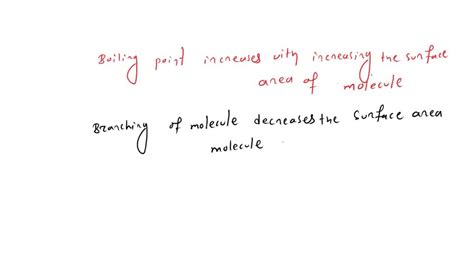 Boiling point increases with increasing the surface
area of molecule
Branching of molecule decreases the surface area
molecule